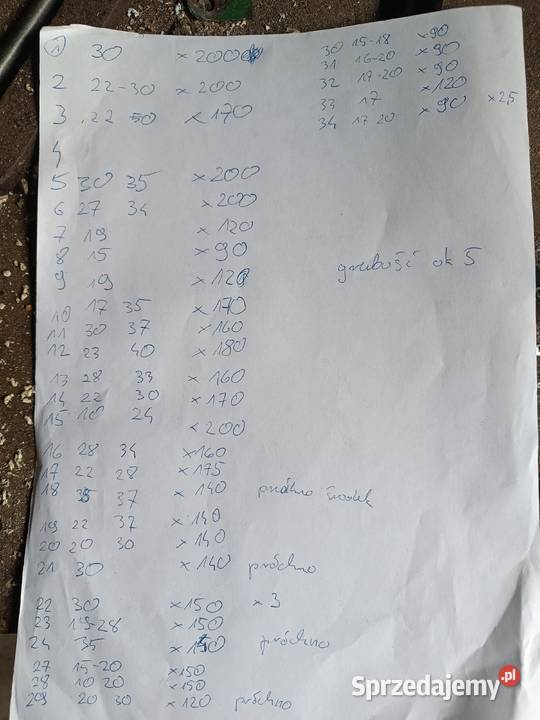 1 30 x200
2 22-30 x200
3 22 50 x170
4
5 30 35 x200
6 27 34 x200
7 19 x120
8 15 x90
9 19 x120
10 17 35 x170
11 30 37 x160
12 23 40 x180
13 28 33 x160
14 22 30 x170
15 10 24 x200
16 28 34 x160
17 22 28 x175
18 37 x140 próchno środek
19 22 37 x140
20 20 30 x140
21 30 x140 próchno
22 30 x150 x3
23 15-28 x150
24 35 x150 próchno
27 15-20 x150
28 10 20 x150
29 20 30 x120 próchno
30 15-18 x90
31 16-20 x90
32 17-20 x90
33 17 x120
34 17 20 x90 x2,5
grubość ok 5
Sprzedajemy.pl